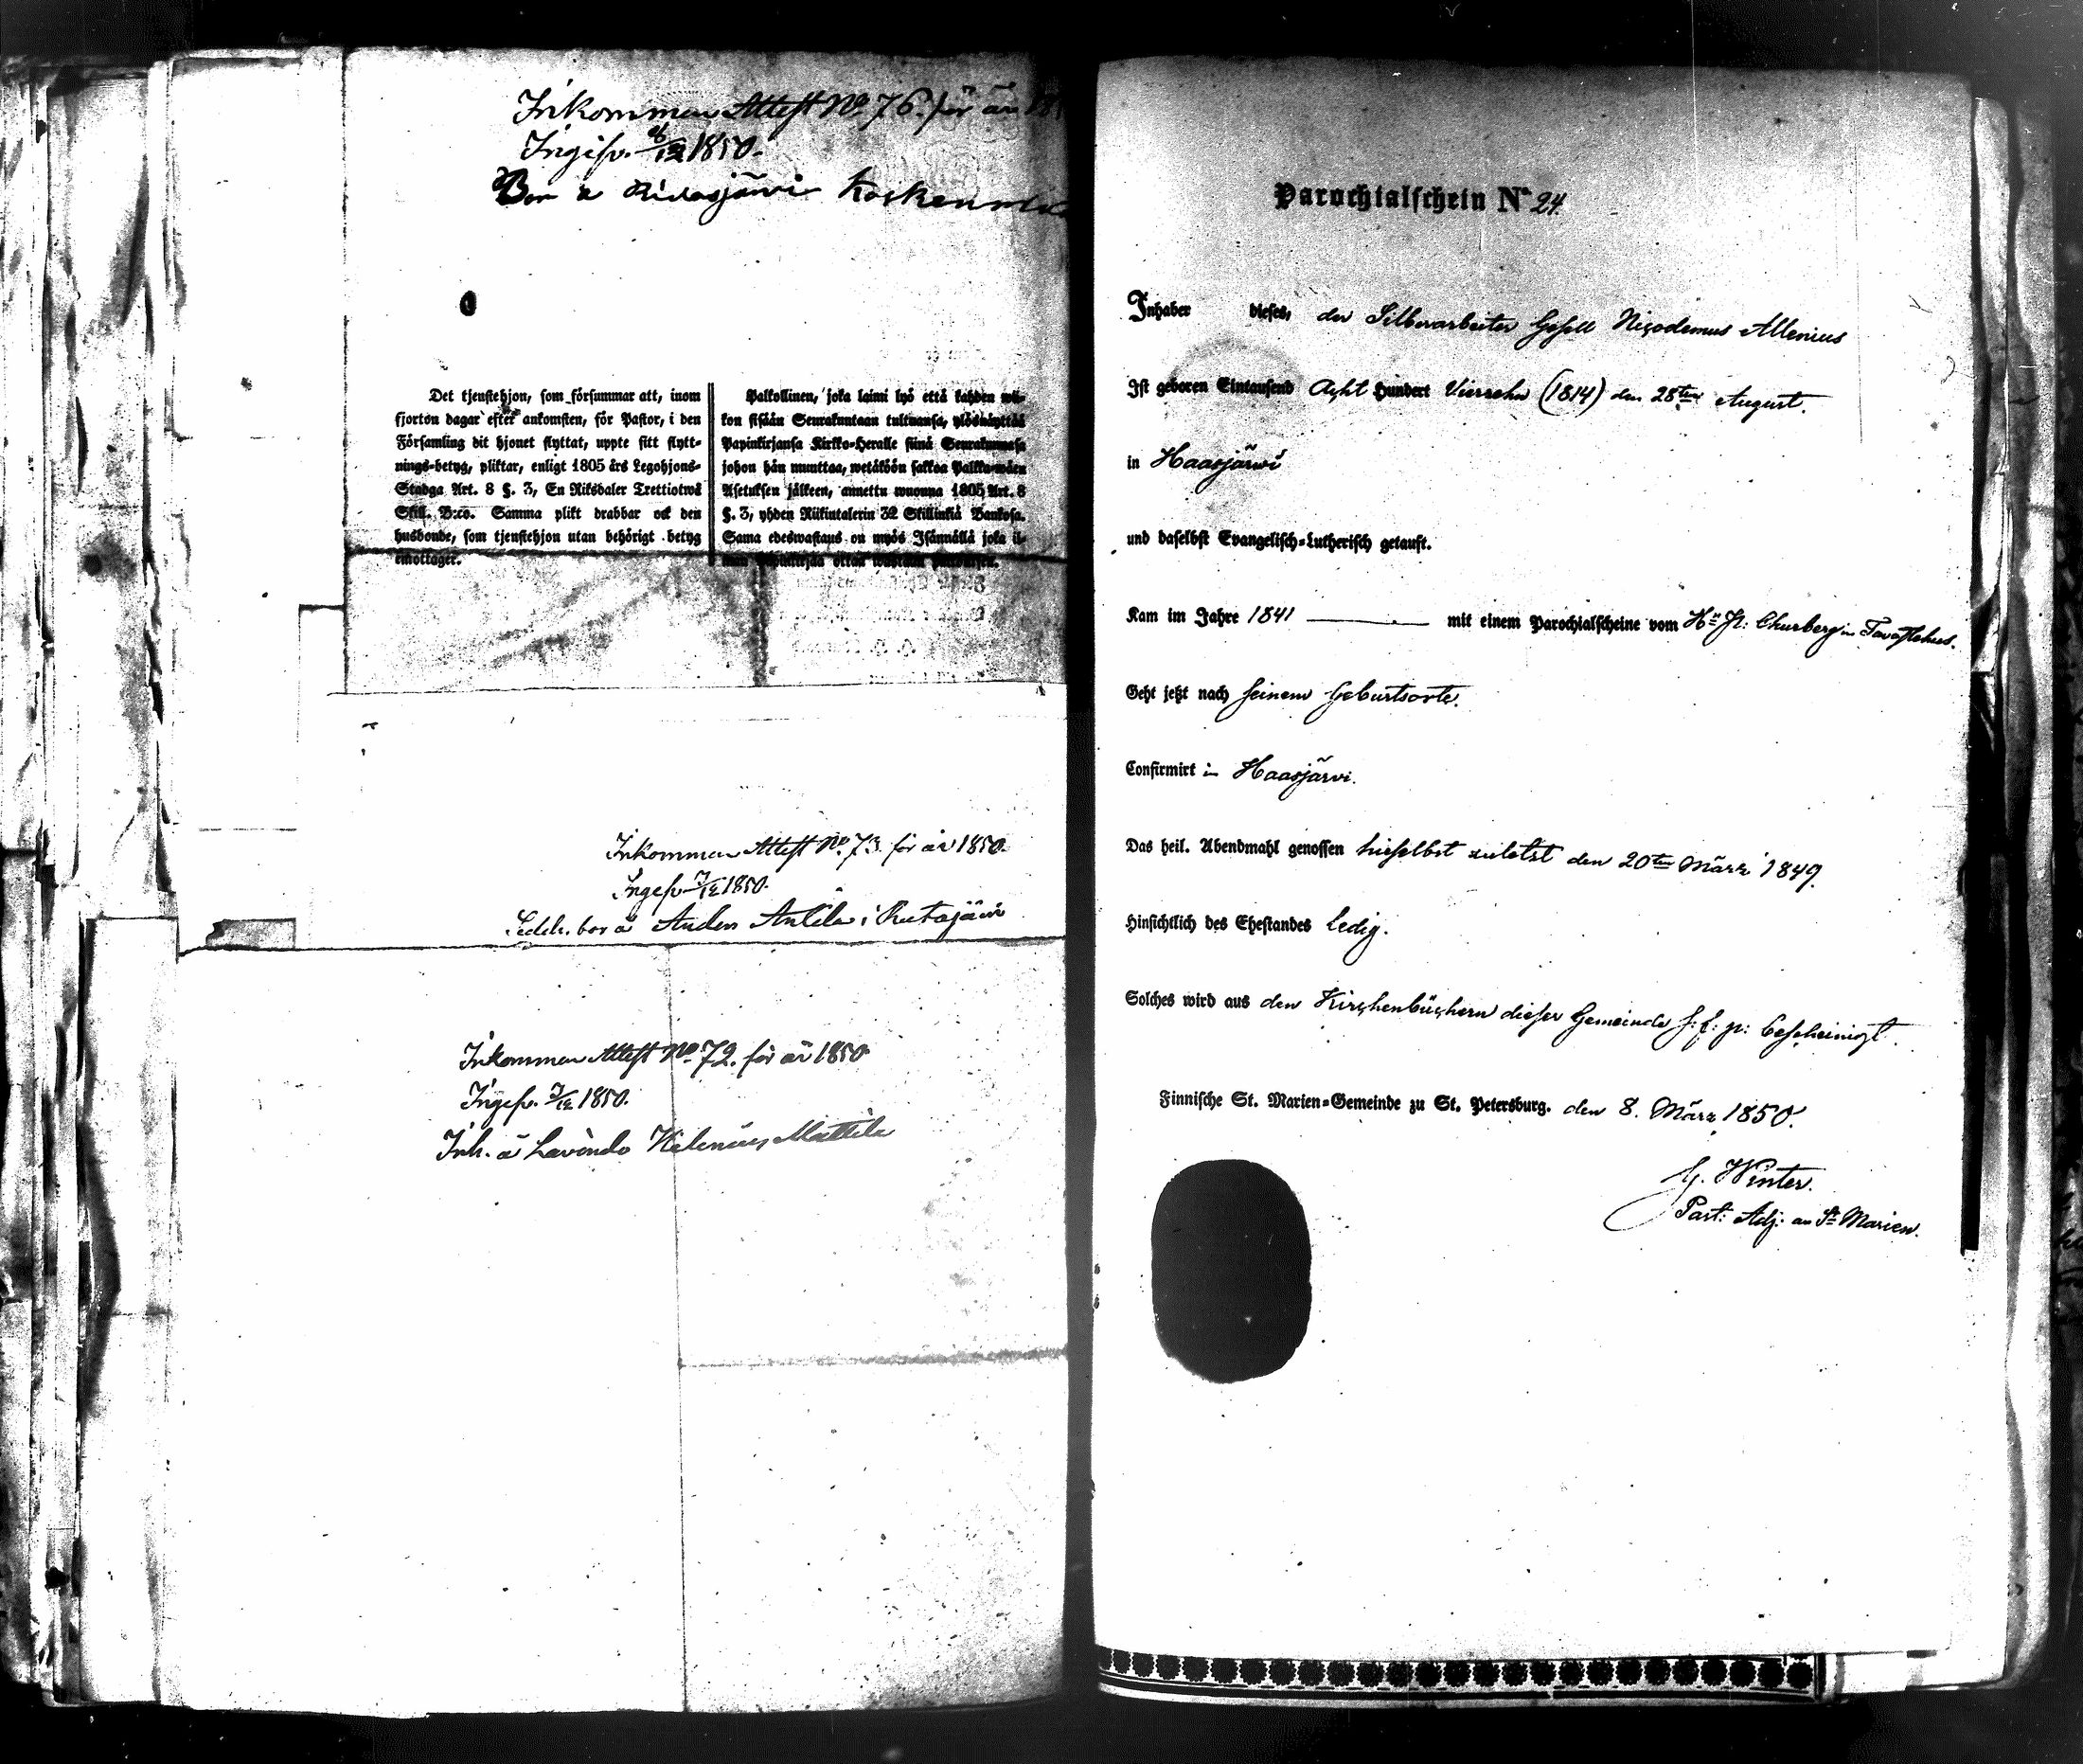 Inkommen Attest No 76. för år
Ingifv. 1850.
Bor å Ridasjärvi
Det tjenstehjon, som försummar att, inom
fjorton dagar efter ankomsten, för Pastor, i den
Församling dit hjonet flyttat, uppte sitt flytt-
nings-betyg, pliktar, enligt 1805 års Legohjons-
Stadga Art. 8 §. 3, En Riksdaler Trettiotwå
Skill. B:co. Samma plikt drabbar ock den
husbonde, som tjenstehjon utan behörigt betyg
emottager.
Palkollinen, joka laimi lyö että kahden wii-
kon sisään Seurakuntaan tultuansa, ylösnäyttää
Papinkirjansa Kirkko-Heralle siinä Seurakunnasa
johon hän muuttaa, wetäköön sakkoa Palkka-wäen
Asetuksen jälkeen, annettu wuonna 1805 Art. 8
§. 3, yhden Riikintalerin 32 Skillinkiä Bankosa.
Sama edeswastaus on myös Isännällä joka il-
man papinkirjaa ottaa
Inkommen Attest No. 73. för år 1850.
Ingifv. 1850.
bor å Anden Anttila i
Inkommen Attest No. 72. för år 1850
Ingifv. 7/12 1850.
Inh. å Mattila
Parochialschein No 24.
Inhaber dieses, der Silberarbeiter Gesell Niçodemus Allenius
Ist geboren Eintausend Açht Hundert Vierzehn (1814) den 28ten August.
in Haasjärwi
und daselbst Evangelisch-Lutherisch getauft.
Kam im Jahre 1841 mit einem Parochialscheine vom Hn Churberg in Tavastehus.
Geht jetzt nach seinem Geburtsorte.
Confirmirt in Haasjärvi.
Das heil. Abendmahl genossen hieselbst zuletzt den 20ten März 1849.
Hinsichtlich des Ehestandes Ledig.
Solches wird aus den Kirçhenbüçhern dieser Gemeinde s: f: p: besçheinigt.
Finnische St. Marien-Gemeinde zu St. Petersburg. den 8. März 1850.
G. Winter.
Past: Adj: an St Marien.